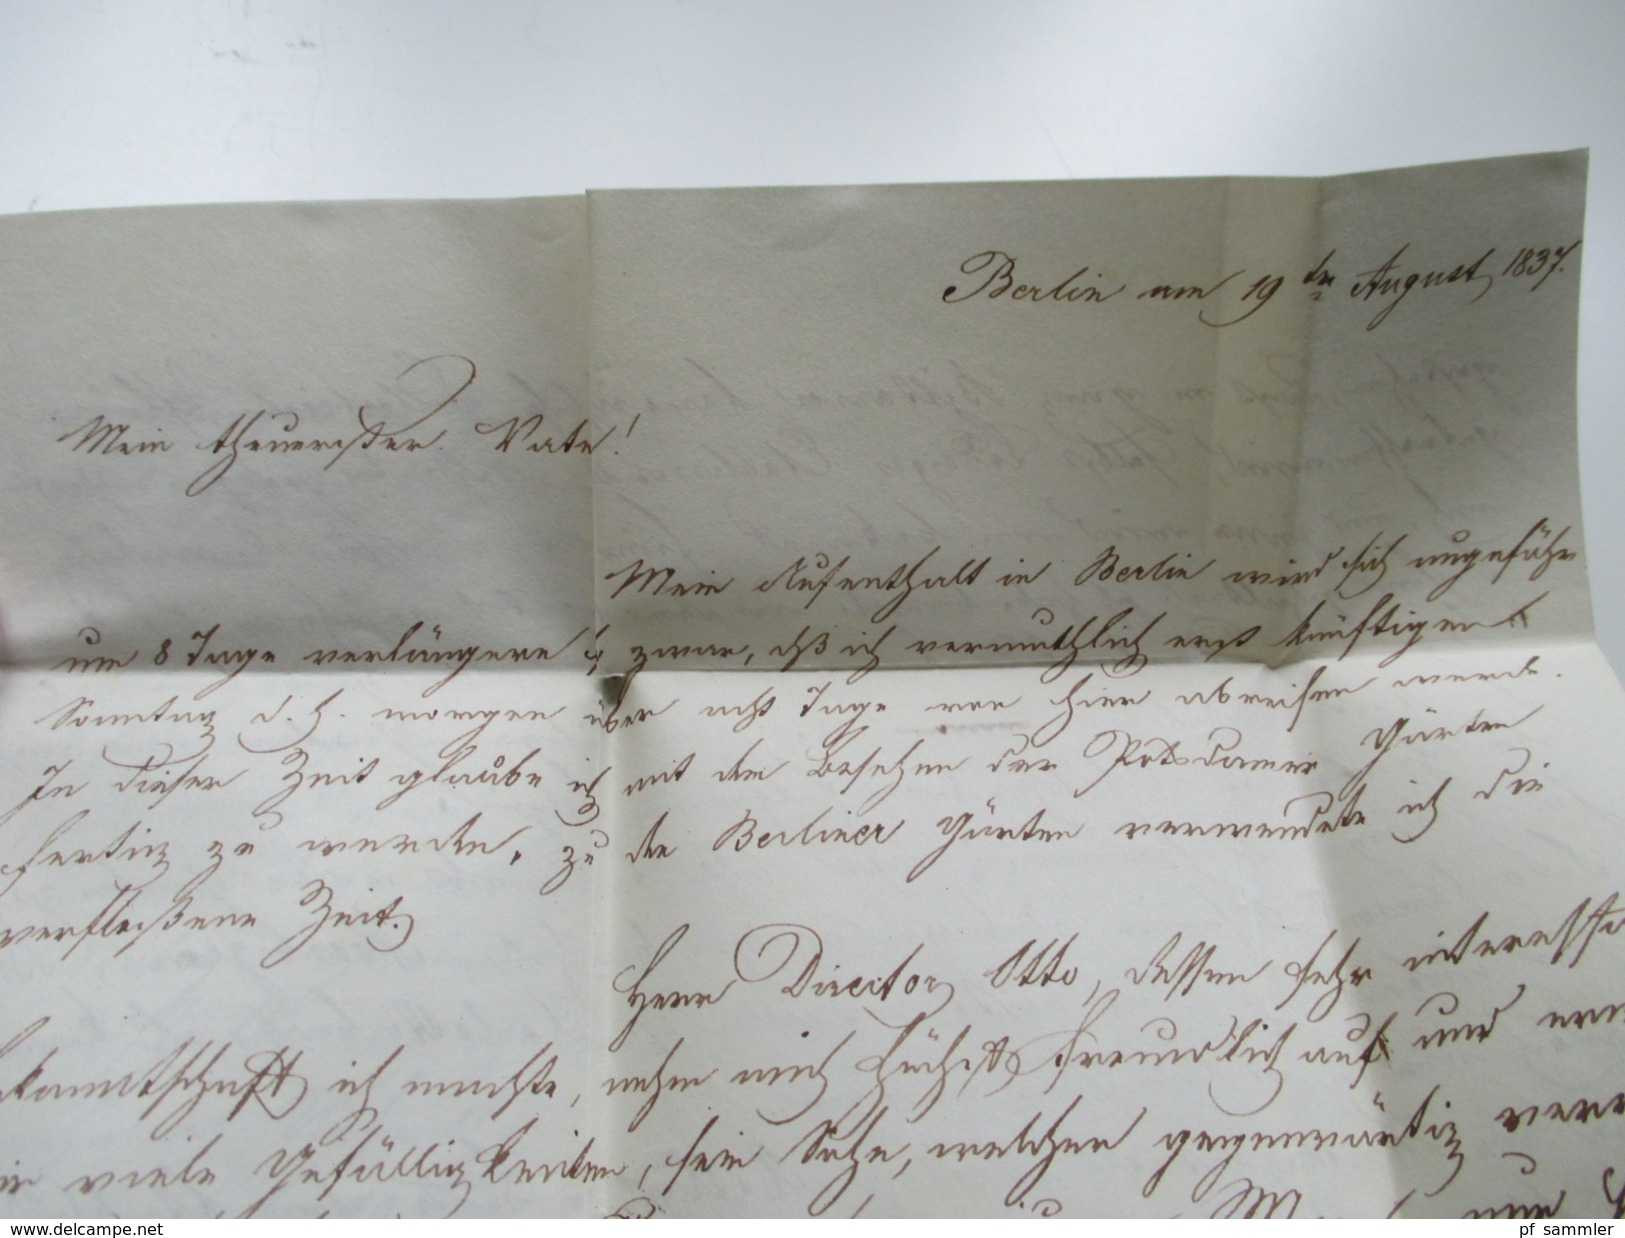 Berlin am 19ten August 1837.
Mein theuerster Vater!
Mein Aufenthalt in Berlin wird sich ungefähr
um 8 Tage verlängern & zwar, dß ich vermuthlich erst künftigen
Sonntag d. h. morgen über acht Tage von hier abreisen werde.
In dieser Zeit glaube ich mit dem Besehen der Potsdamer Gärten
fertig zu werden, zu den Berliner Gärten verwendete ich die
verfloßene Zeit.
Herr Director Otto, dessen sehr interessa
kanntschaft ich machte, nahm mich höchst freundlich auf und erw
viele Gefälligkeiten, sein Sohn, welcher gegenwärtig
nur
www.delcampe.net
pf_sammler